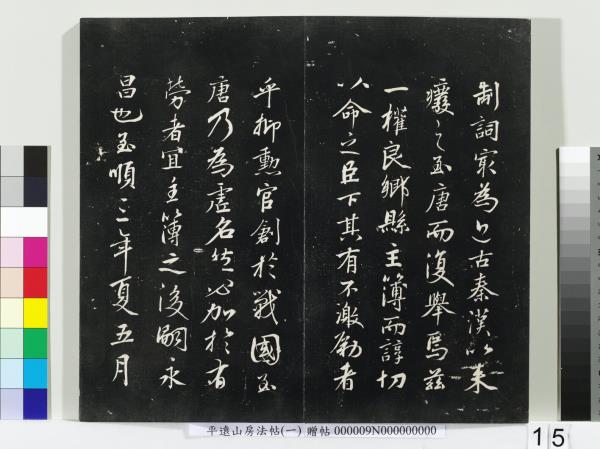 制詞冣為近古秦漢以来
癈之至唐而復舉焉茲
一權良鄉縣主簿而諄切
以命之臣下其有不激勵者
乎抑勳官創於戰國至
唐乃為虛名然必加於有
勞者宜主簿之後嗣永
昌也至順三年夏五月
平遠山房法帖(一) 贈帖 000009N000000000
15